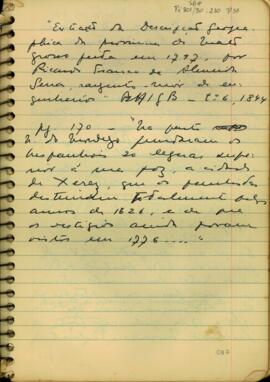 "Extracto da Descripção Geogra-
phica da provincia de Matto
Grosso feita em 1797, por
Ricardo Franco de Almeida
Serra, sargento-mór de en-
genheiros" RIHGB - 1844
Pg. 170 - "Na parte
N. do Mondego fundaram os
hespanhoes 20 leguas supe-
rior á sua foz, a cidade
de Xerez, que os paulistas
destruiram totalmente pelos
annos de 1626, e de que
os vestigios ainda foram
vistos em 1776 ...."